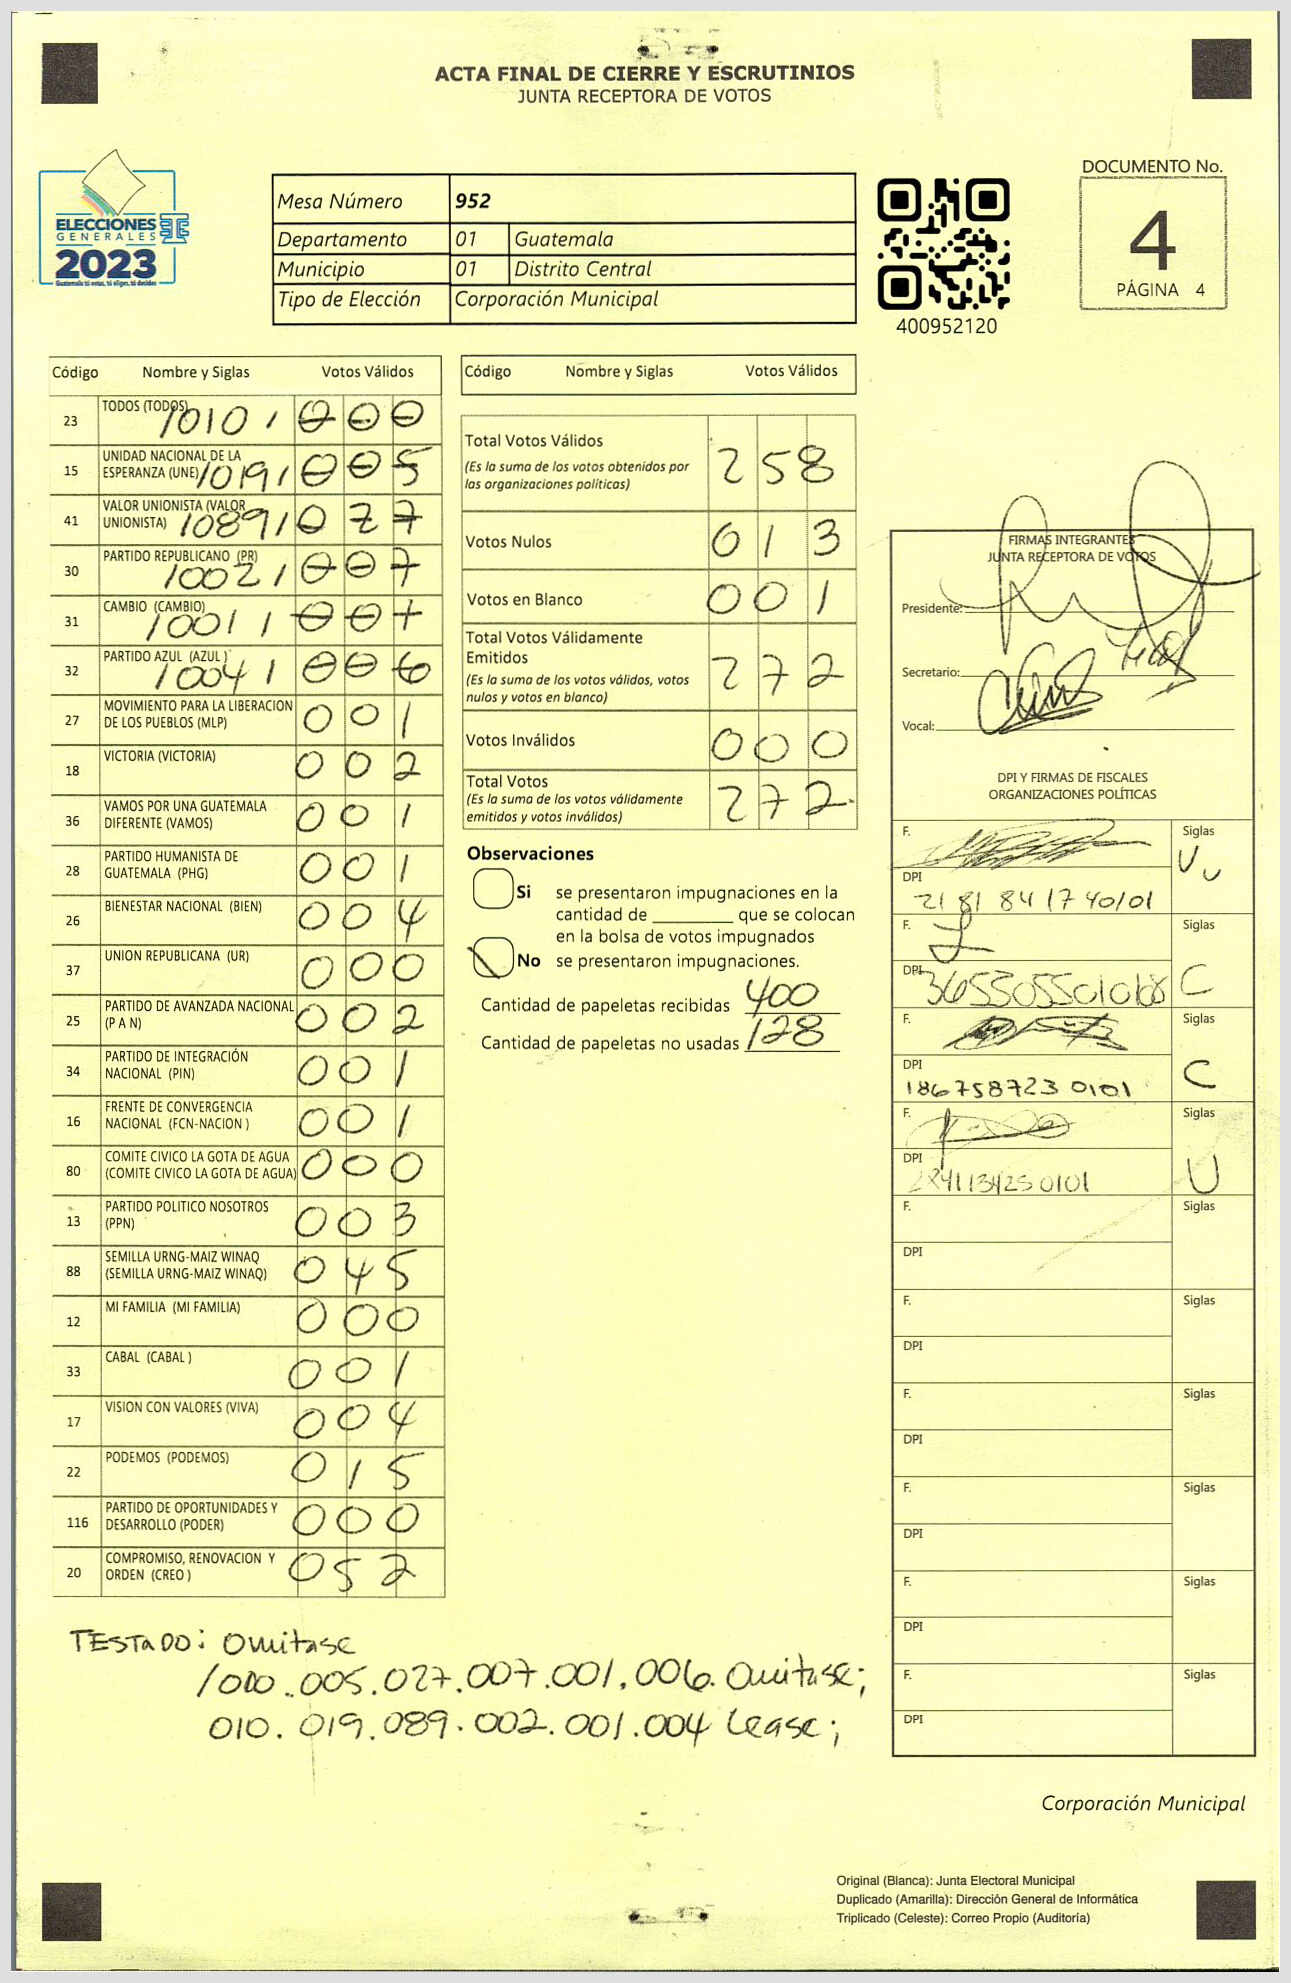 ACTA FINAL DE CIERRE Y ESCRUTINIOS
JUNTA RECEPTORA DE VOTOS
ELECCIONES
GENERALES
2023
Guatemala tú votas, tú eliges, tú decides
Mesa Número 952
Departamento 01 Guatemala
Municipio 01 Distrito Central
Tipo de Elección Corporación Municipal
400952120
DOCUMENTO No.
4
PÁGINA 4
Código Nombre y Siglas Votos Válidos
23 TODOS (TODOS) /010/ 000
15 UNIDAD NACIONAL DE LA
ESPERANZA (UNE) /019/ 005
41 VALOR UNIONISTA (VALOR
UNIONISTA) /089/ 027
30 PARTIDO REPUBLICANO (PR)
/002/ 007
31 CAMBIO (CAMBIO)
/001/ 001
32 PARTIDO AZUL (AZUL)
/004/ 006
27 MOVIMIENTO PARA LA LIBERACION
DE LOS PUEBLOS (MLP) 001
18 VICTORIA (VICTORIA) 002
36 VAMOS POR UNA GUATEMALA
DIFERENTE (VAMOS) 001
28 PARTIDO HUMANISTA DE
GUATEMALA (PHG) 001
26 BIENESTAR NACIONAL (BIEN) 004
37 UNION REPUBLICANA (UR) 000
25 PARTIDO DE AVANZADA NACIONAL
(P A N) 002
34 PARTIDO DE INTEGRACIÓN
NACIONAL (PIN) 001
16 FRENTE DE CONVERGENCIA
NACIONAL (FCN-NACION ) 001
80 COMITE CIVICO LA GOTA DE AGUA
(COMITE CIVICO LA GOTA DE AGUA) 000
13 PARTIDO POLITICO NOSOTROS
(PPN) 003
88 SEMILLA URNG-MAIZ WINAQ
(SEMILLA URNG-MAIZ WINAQ) 045
12 MI FAMILIA (MI FAMILIA) 000
33 CABAL (CABAL ) 001
17 VISION CON VALORES (VIVA) 004
22 PODEMOS (PODEMOS) 015
116 PARTIDO DE OPORTUNIDADES Y
DESARROLLO (PODER) 000
20 COMPROMISO, RENOVACION Y
ORDEN (CREO ) 052
Código Nombre y Siglas Votos Válidos
Total Votos Válidos 258
(Es la suma de los votos obtenidos por
las organizaciones políticas)
Votos Nulos 013
Votos en Blanco 001
Total Votos Válidamente
Emitidos 272
(Es la suma de los votos válidos, votos
nulos y votos en blanco)
Votos Inválidos 000
Total Votos 272
(Es la suma de los votos válidamente
emitidos y votos inválidos)
Observaciones
Si se presentaron impugnaciones en la
cantidad de ________ que se colocan
en la bolsa de votos impugnados
No se presentaron impugnaciones.
Cantidad de papeletas recibidas 400
Cantidad de papeletas no usadas 128
FIRMAS INTEGRANTES
JUNTA RECEPTORA DE VOTOS
Presidente:
Secretario:
Vocal:
DPI Y FIRMAS DE FISCALES
ORGANIZACIONES POLÍTICAS
F. Siglas
DPI
2181 8417 40101
F. Siglas
DPI C
F. Siglas
DPI C
186758723 0101
F. Siglas
DPI U
F. Siglas
DPI
F. Siglas
DPI
F. Siglas
DPI
F. Siglas
DPI
F. Siglas
DPI
F. Siglas
DPI
TESTADO: Omitase
/000.005.027.007.001.006. Omitase;
010. 019. 089. 002. 001. 004 Lease;
Corporación Municipal
Original (Blanca): Junta Electoral Municipal
Duplicado (Amarilla): Dirección General de Informática
Triplicado (Celeste): Correo Propio (Auditoría)